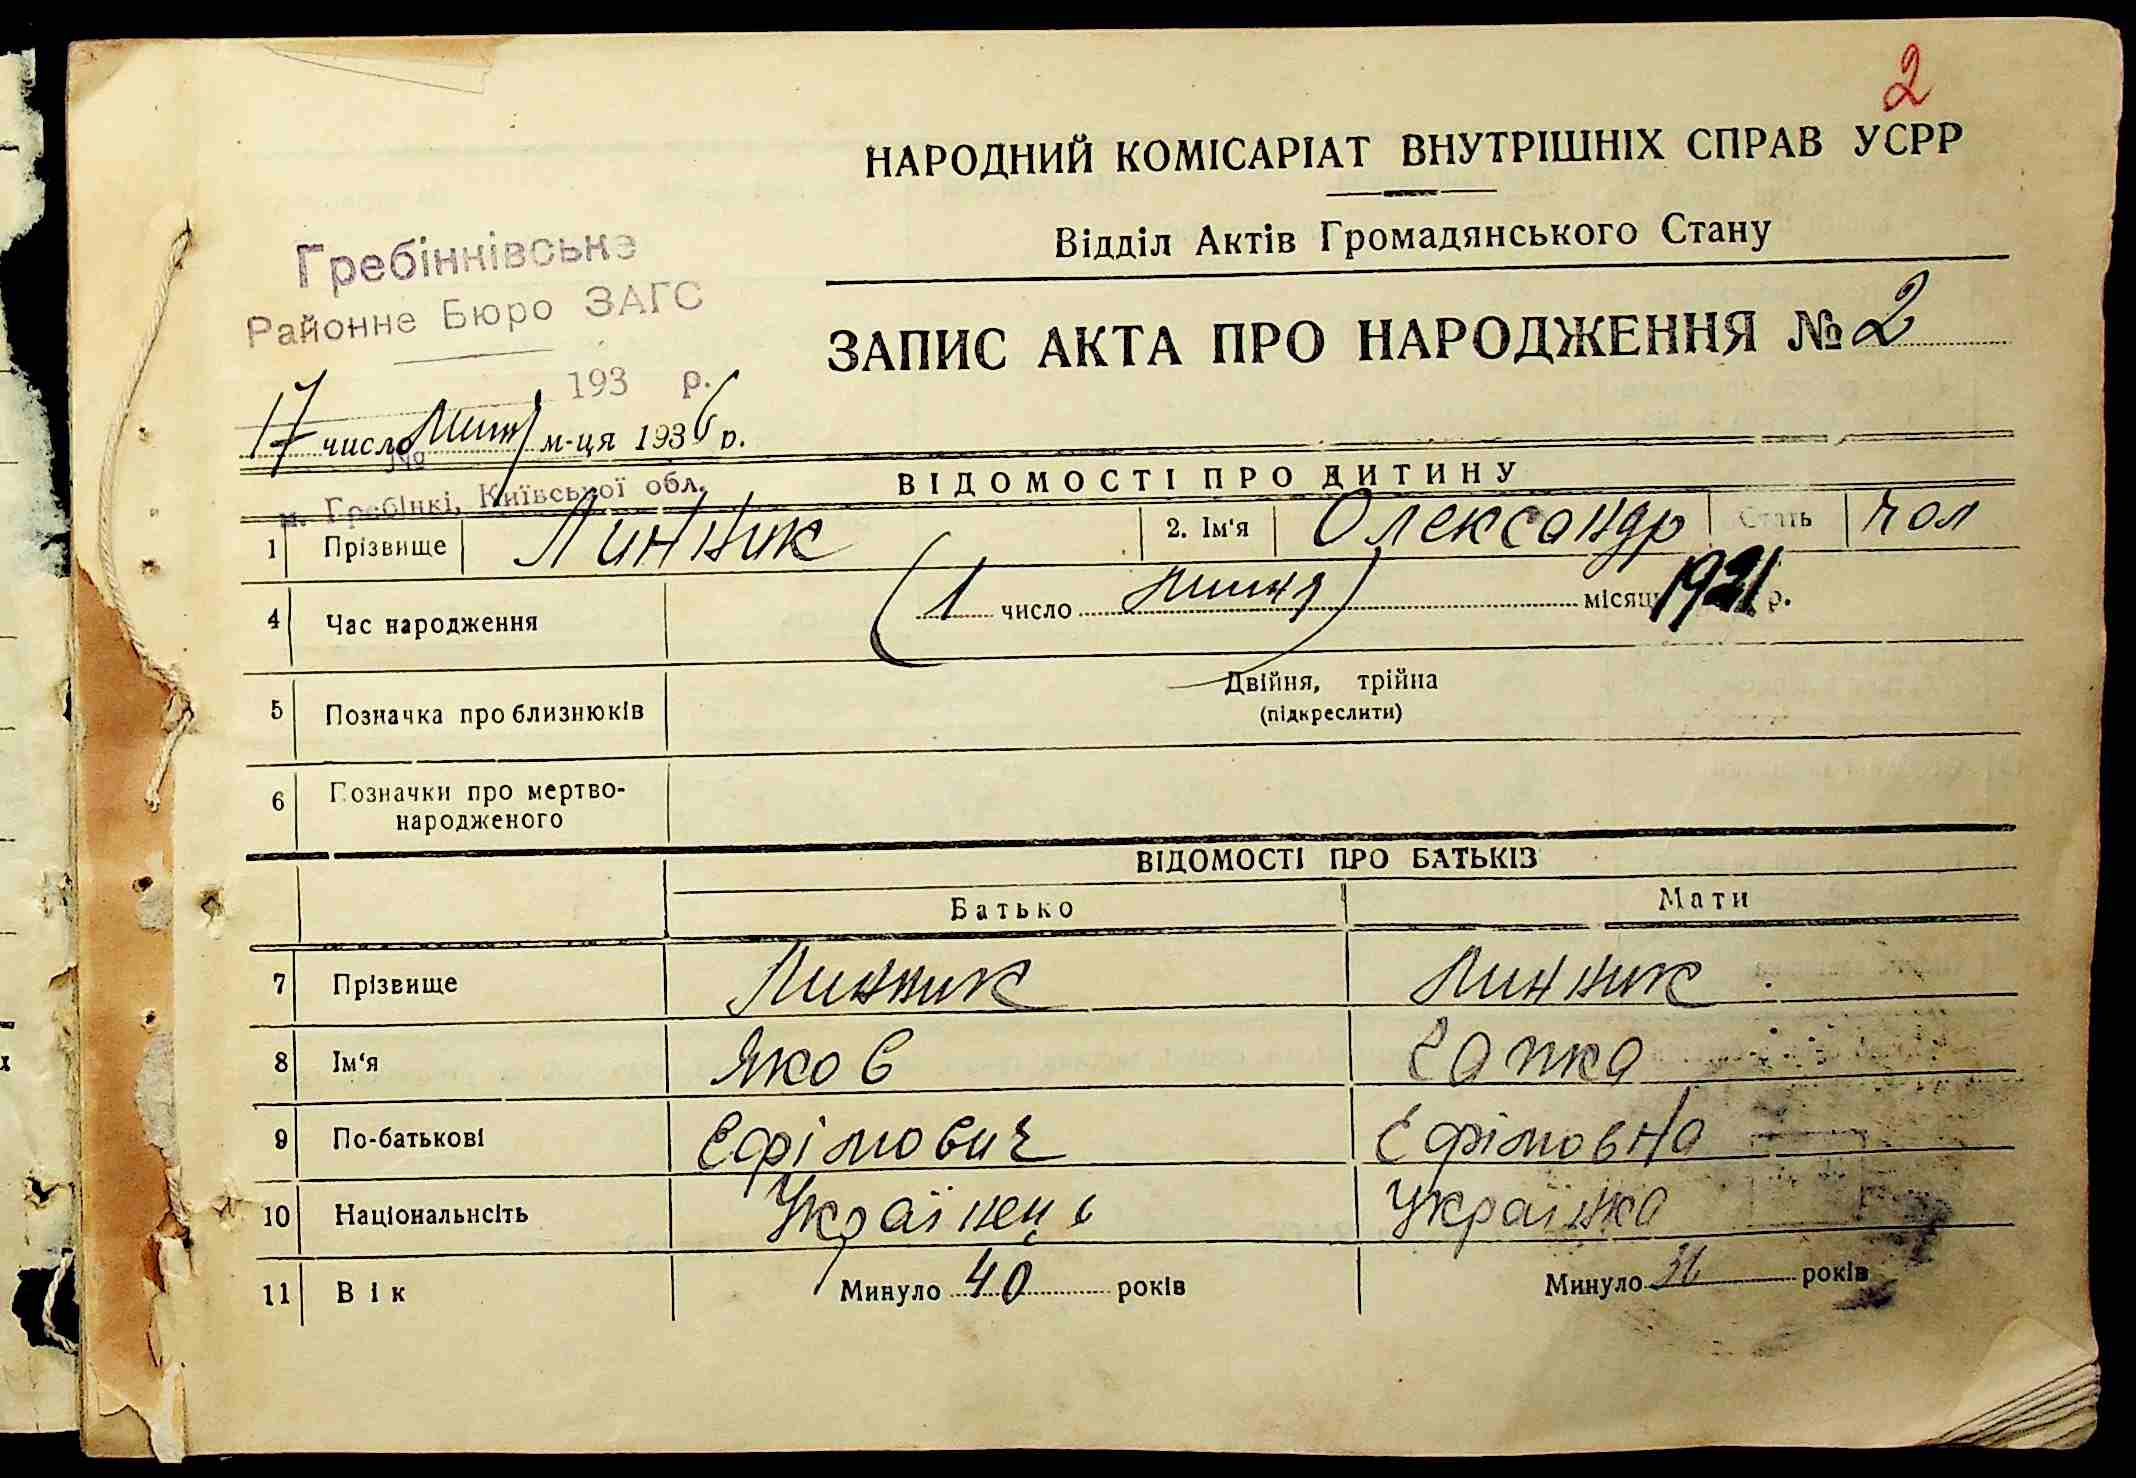 2
НАРОДНИЙ КОМІСАРІАТ ВНУТРІШНІХ СПРАВ УСРР
Відділ Актів Громадянського Стану
Гребінківське
Районне Бюро ЗАГС
193 р.
ЗАПИС АКТА ПРО НАРОДЖЕННЯ № 2
17 число липня м-ця 1936 р.
№
м. Гребінкі, Київської обл.
ВІДОМОСТІ ПРО ДИТИНУ
1 Прізвище Линник 2. Ім'я Олександр Стать чол
4 Час народження (1 число липня) місяця 1921 р.
5 Позначка про близнюків Двійня, трійна
(підкреслити)
6 Позначки про мертво-
народженого
ВІДОМОСТІ ПРО БАТЬКІВ
Батько Мати
7 Прізвище Линник Линник
8 Ім'я Яков Гапка
9 По-батькові Єфімович Єфімовна
10 Національнсіть Українець Українка
11 Вік Минуло 40 років Минуло 36 років